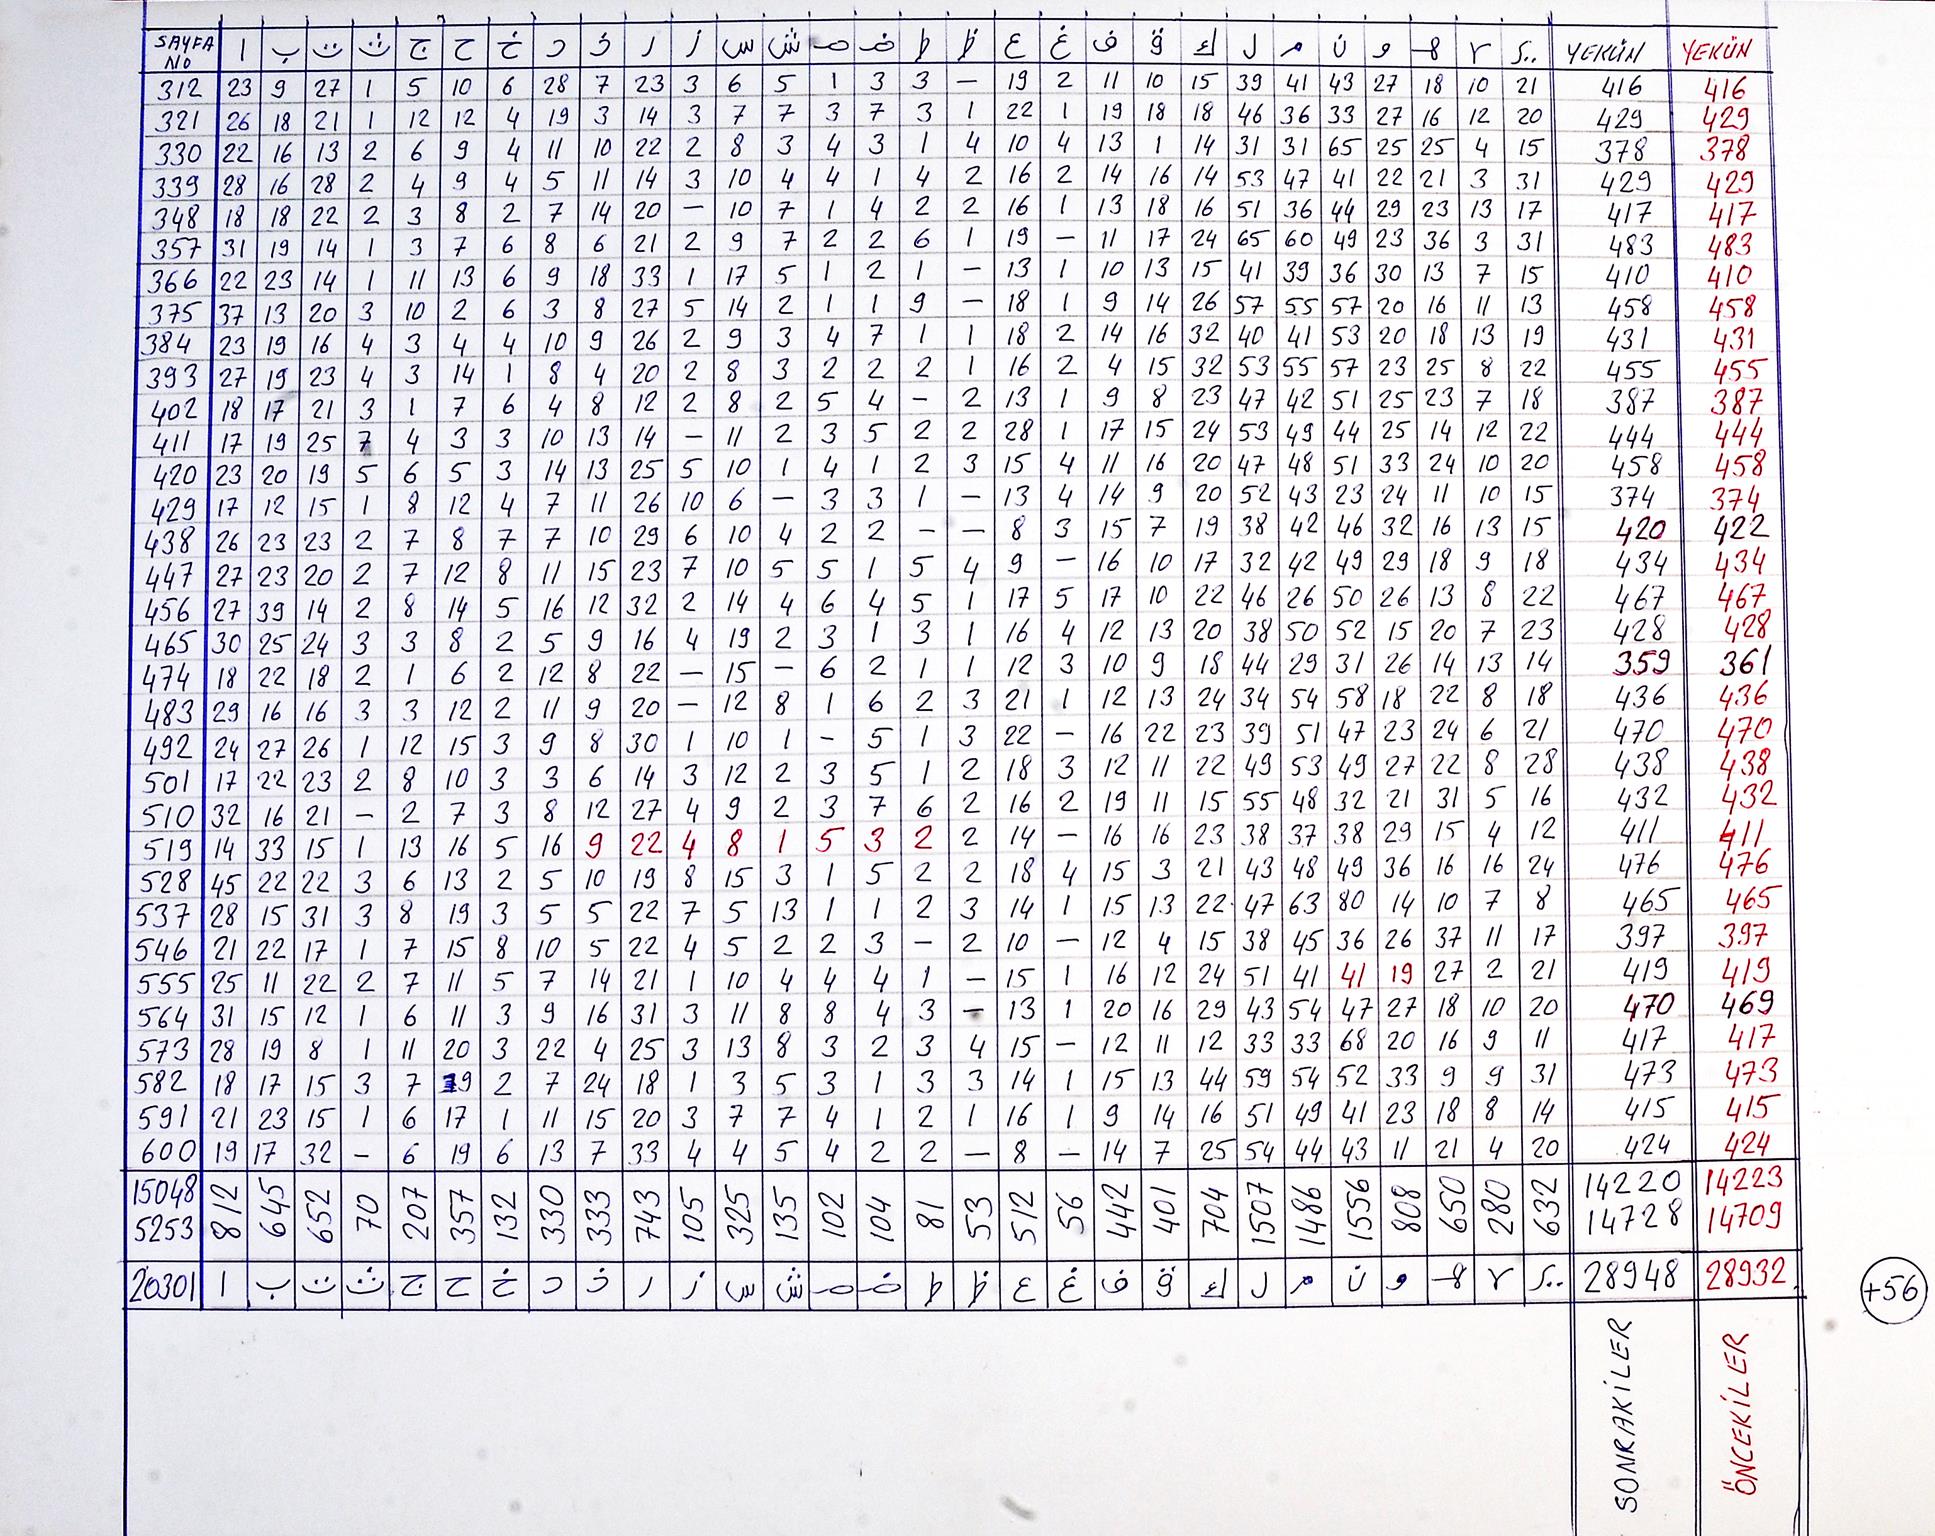 SAYFA NO ا ب ت ث ج ح خ د ذ ر ز س ش ص ض ط ظ ع غ ف ق ك ل م ن و ه لا ي YEKÜN YEKÜN
312 23 9 27 1 5 10 6 28 7 23 3 6 5 1 3 3 — 19 2 11 10 15 39 41 43 27 18 10 21 416 416
321 26 18 21 1 12 12 4 19 3 14 3 7 7 3 7 3 1 22 1 19 18 18 46 36 33 27 16 12 20 429 429
330 22 16 13 2 6 9 4 11 10 22 2 8 3 4 3 1 4 10 4 13 1 14 31 31 65 25 25 4 15 378 378
339 28 16 28 2 4 9 4 5 11 14 3 10 4 4 1 4 2 16 2 14 16 14 53 47 41 22 21 3 31 429 429
348 18 18 22 2 3 8 2 7 14 20 — 10 7 1 4 2 2 16 1 13 18 16 51 36 44 29 23 13 17 417 417
357 31 19 14 1 3 7 6 8 6 21 2 9 7 2 2 6 1 19 — 11 17 24 65 60 49 23 36 3 31 483 483
366 22 23 14 1 11 13 6 9 18 33 1 17 5 1 2 1 — 13 1 10 13 15 41 39 36 30 13 7 15 410 410
375 37 13 20 3 10 2 6 3 8 27 5 14 2 1 1 9 — 18 1 9 14 26 57 55 57 20 16 11 13 458 458
384 23 19 16 4 3 4 4 10 9 26 2 9 3 4 7 1 1 18 2 14 16 32 40 41 53 20 18 13 19 431 431
393 27 19 23 4 3 14 1 8 4 20 2 8 3 2 2 2 1 16 2 4 15 32 53 55 57 23 25 8 22 455 455
402 18 17 21 3 1 7 6 4 8 12 2 8 2 5 4 - 2 13 1 9 8 23 47 42 51 25 23 7 18 387 387
411 17 19 25 7 4 3 3 10 13 14 — 11 2 3 5 2 2 28 1 17 15 24 53 49 44 25 14 12 22 444 444
420 23 20 19 5 6 5 3 14 13 25 5 10 1 4 1 2 3 15 4 11 16 20 47 48 51 33 24 10 20 458 458
429 17 12 15 1 8 12 4 7 11 26 10 6 — 3 3 1 — 13 4 14 9 20 52 43 23 24 11 10 15 374 374
438 26 23 23 2 7 8 7 7 10 29 6 10 4 2 2 - — 8 3 15 7 19 38 42 46 32 16 13 15 420 422
447 27 23 20 2 7 12 8 11 15 23 7 10 5 5 1 5 4 9 — 16 10 17 32 42 49 29 18 9 18 434 434
456 27 39 14 2 8 14 5 16 12 32 2 14 4 6 4 5 1 17 5 17 10 22 46 26 50 26 13 8 22 467 467
465 30 25 24 3 3 8 2 5 9 16 4 19 2 3 1 3 1 16 4 12 13 20 38 50 52 15 20 7 23 428 428
474 18 22 18 2 1 6 2 12 8 22 — 15 — 6 2 1 1 12 3 10 9 18 44 29 31 26 14 13 14 359 361
483 29 16 16 3 3 12 2 11 9 20 — 12 8 1 6 2 3 21 1 12 13 24 34 54 58 18 22 8 18 436 436
492 24 27 26 1 12 15 3 9 8 30 1 10 1 - 5 1 3 22 — 16 22 23 39 51 47 23 24 6 21 470 470
501 17 22 23 2 8 10 3 3 6 14 3 12 2 3 5 1 2 18 3 12 11 22 49 53 49 27 22 8 28 438 438
510 32 16 21 — 2 7 3 8 12 27 4 9 2 3 7 6 2 16 2 19 11 15 55 48 32 21 31 5 16 432 432
519 14 33 15 1 13 16 5 16 9 22 4 8 1 5 3 2 2 14 — 16 16 23 38 37 38 29 15 4 12 411 411
528 45 22 22 3 6 13 2 5 10 19 8 15 3 1 5 2 2 18 4 15 3 21 43 48 49 36 16 16 24 476 476
537 28 15 31 3 8 19 3 5 5 22 7 5 13 1 1 2 3 14 1 15 13 22 47 63 80 14 10 7 8 465 465
546 21 22 17 1 7 15 8 10 5 22 4 5 2 2 3 - 2 10 — 12 4 15 38 45 36 26 37 11 17 397 397
555 25 11 22 2 7 11 5 7 14 21 1 10 4 4 4 1 — 15 1 16 12 24 51 41 41 19 27 2 21 419 419
564 31 15 12 1 6 11 3 9 16 31 3 11 8 8 4 3 — 13 1 20 16 29 43 54 47 27 18 10 20 470 469
573 28 19 8 1 11 20 3 22 4 25 3 13 8 3 2 3 4 15 — 12 11 12 33 33 68 20 16 9 11 417 417
582 18 17 15 3 7 19 2 7 24 18 1 3 5 3 1 3 3 14 1 15 13 44 59 54 52 33 9 9 31 473 473
591 21 23 15 1 6 17 1 11 15 20 3 7 7 4 1 2 1 16 1 9 14 16 51 49 41 23 18 8 14 415 415
600 19 17 32 — 6 19 6 13 7 33 4 4 5 4 2 2 — 8 — 14 7 25 54 44 43 11 21 4 20 424 424
15048 812 645 652 70 207 357 132 330 333 743 105 325 135 102 104 81 53 512 56 442 401 704 1507 1486 1556 808 650 280 632 14220 14223
5253 14728 14709
20301 ا ب ت ث ج ح خ د ذ ر ز س ش ص ض ط ظ ع غ ف ق ك ل م ن و ه لا ي 28948 28932
+56
SONRAKİLER
ÖNCEKİLER